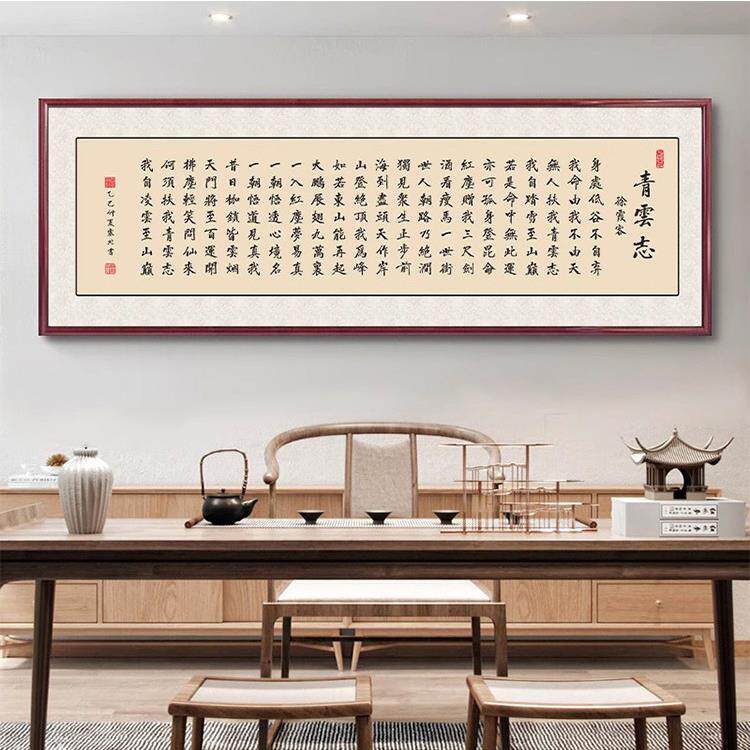 青雲志
徐霞客
身處低谷不自弃
我命由我不由天
無人扶我青雲志
我自踏雪至山巔
若是命中無此運
亦可孤身登昆侖
紅塵贈我三尺劍
酒肴瘦馬一世街
世人朝路乃絕澗
獨見衆生止步前
海到盡頭天作岸
山登絕頂我爲峰
如若東山能再起
大鵬展翅九萬裏
一入紅塵夢易真
一朝悟透心境名
一朝悟道見真我
昔日枷鎖皆雲烟
天門將至百運開
拂塵輕笑問仙來
何須扶我青雲志
我自凌雲至山巔
乙巳仲夏北書